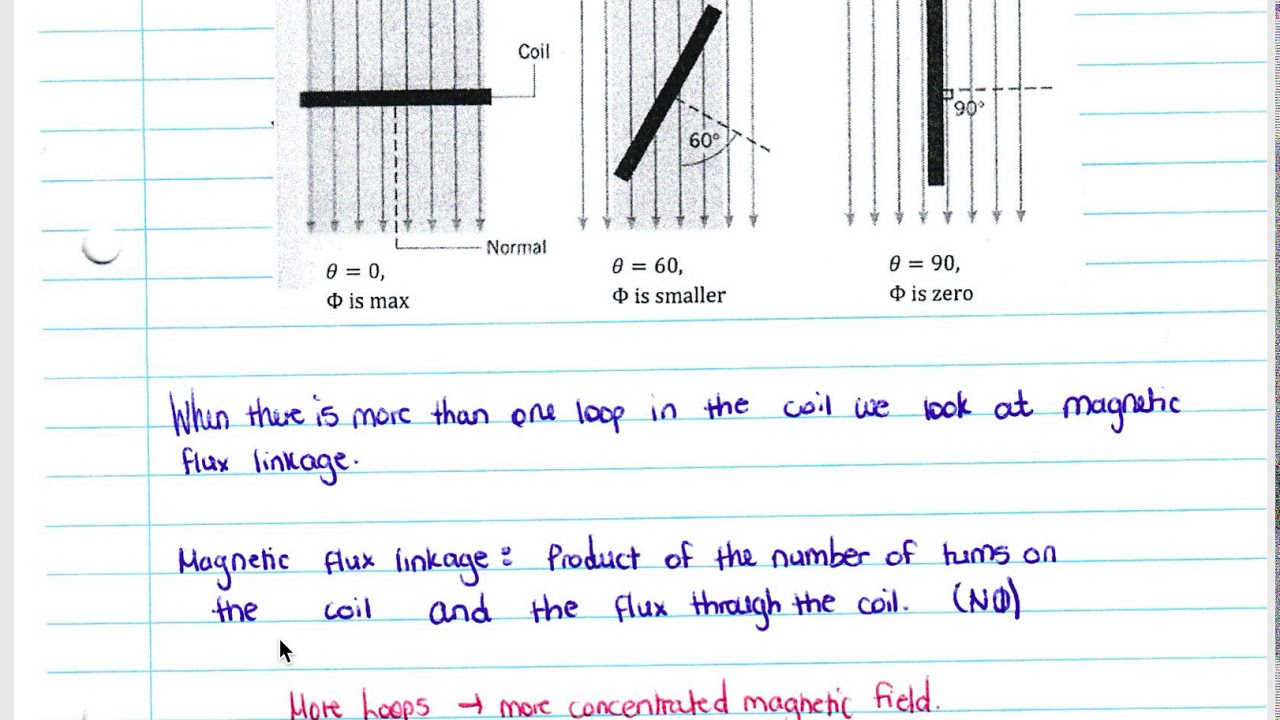 Coil
60°
90°
Normal
θ = 0,
Φ is max
θ = 60,
Φ is smaller
θ = 90,
Φ is zero
When there is more than one loop in the coil we look at magnetic
flux linkage.
Magnetic flux linkage: Product of the number of turns on
the coil and the flux through the coil. (NΦ)
More hoops → more concentrated magnetic field.